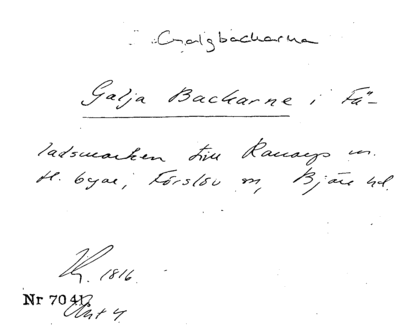 Galgbackarna
Galja Backarne i Fä-
ladsmarken till Ranarps m.
fl. byar, Förslöv sn, Bjäre hd.
1816.
Nr 7041.
Akt 4